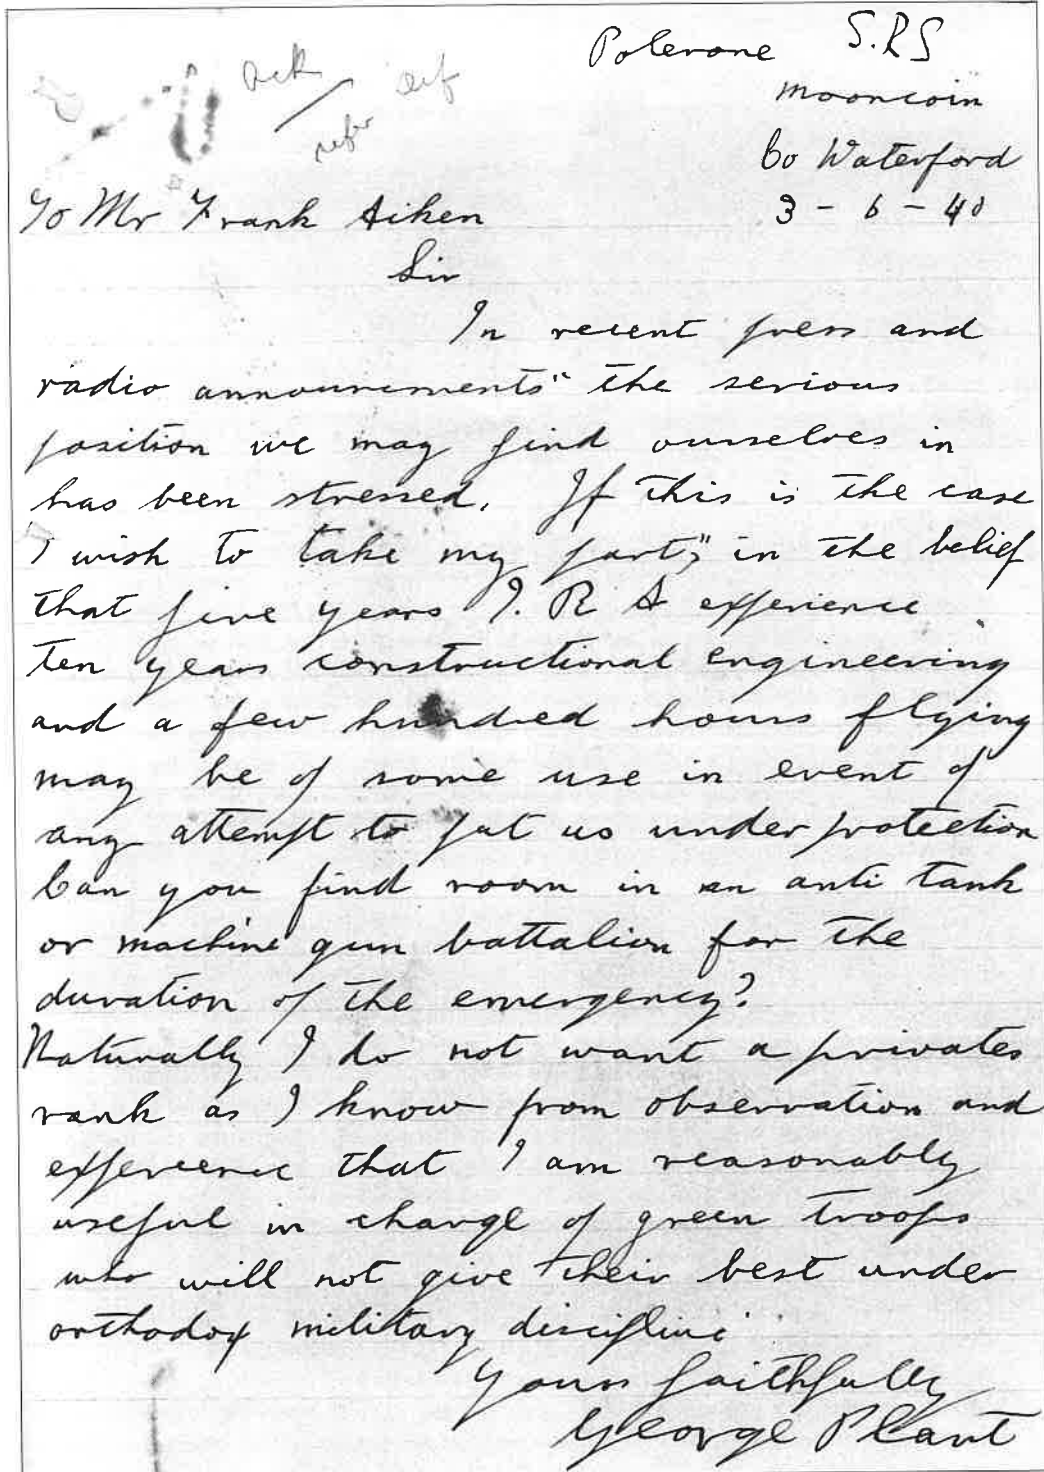 Polerone S.R.S
Mooncoin
Co Waterford
3 - 6 - 40
ack
refer
To Mr Frank Aiken
Sir
In recent press and
radio announcements" the serious
position we may find ourselves in
has been stressed. If this is the case
I wish to take my part," in the belief
that five years I. R A experience
ten years constructional engineering
and a few hundred hours flying
may be of some use in event of
any attempt to put us under protection
Can you find room in an anti tank
or machine gun battalion for the
duration of the emergency?
Naturally I do not want a privates
rank as I know from observation and
experience that I am reasonably
useful in charge of green troops
who will not give their best under
orthodox military discipline
Yours faithfully
George Plant